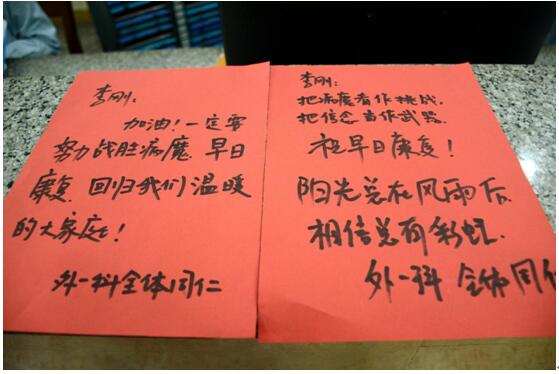 李刚：
加油！一定要
努力战胜病魔，早日
康复，回归我们温暖
的大家庭！
外一科全体同仁
李刚：
把病魔看作挑战，
把信念当作武器。
祝早日康复！
阳光总在风雨后，
相信总有彩虹.
外一科 全体同仁